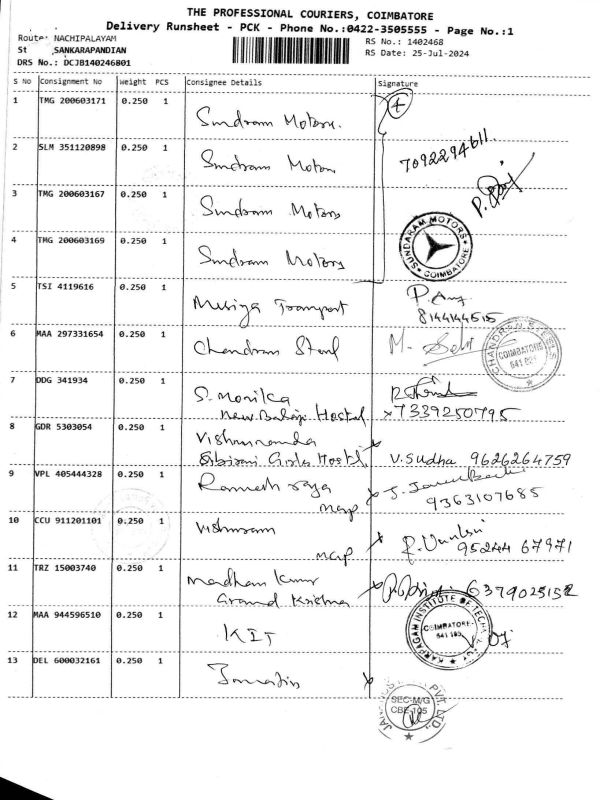 THE PROFESSIONAL COURIERS, COIMBATORE
Delivery Runsheet - PCK - Phone No.:0422-3505555 - Page No.:1
Route: NACHIPALAYAM
RS No.: 1402468
St SANKARAPANDIAN
RS Date: 25-Jul-2024
DRS No.: DCJB140246801
S No Consignment No Weight PCS Consignee Details Signature
1 TMG 200603171 0.250 1 Sundram Motors. 4
2 SLM 351120898 0.250 1 Sundram Motors 7092294611
3 TMG 200603167 0.250 1 Sundram Motors
4 TMG 200603169 0.250 1 Sundram Motors SUNDARAM MOTORS COIMBATORE
5 TSI 4119616 0.250 1 Transport
8144144515
6 MAA 297331654 0.250 1 Chandran CHANDRAN STEELS COIMBATORE
7 DDG 341934 0.250 1 S. Monika
New Balaji Hostel 7339250795
8 GDR 5303054 0.250 1 Vishnunanda
Girls Hostel V. Sudha 9626264759
9 VPL 405444328 0.250 1 Ramesh raja
9363107685
10 CCU 911201101 0.250 1 Vishnuram
95244 67971
11 TRZ 15003740 0.250 1 Madhan Kumar
Grand Krishna
12 MAA 944596510 0.250 1 KIT KARPAGAM INSTITUTE OF TECHNOLOGY COIMBATORE-
13 DEL 600032161 0.250 1 PVT LTD. SEC-M/G
CBE-105